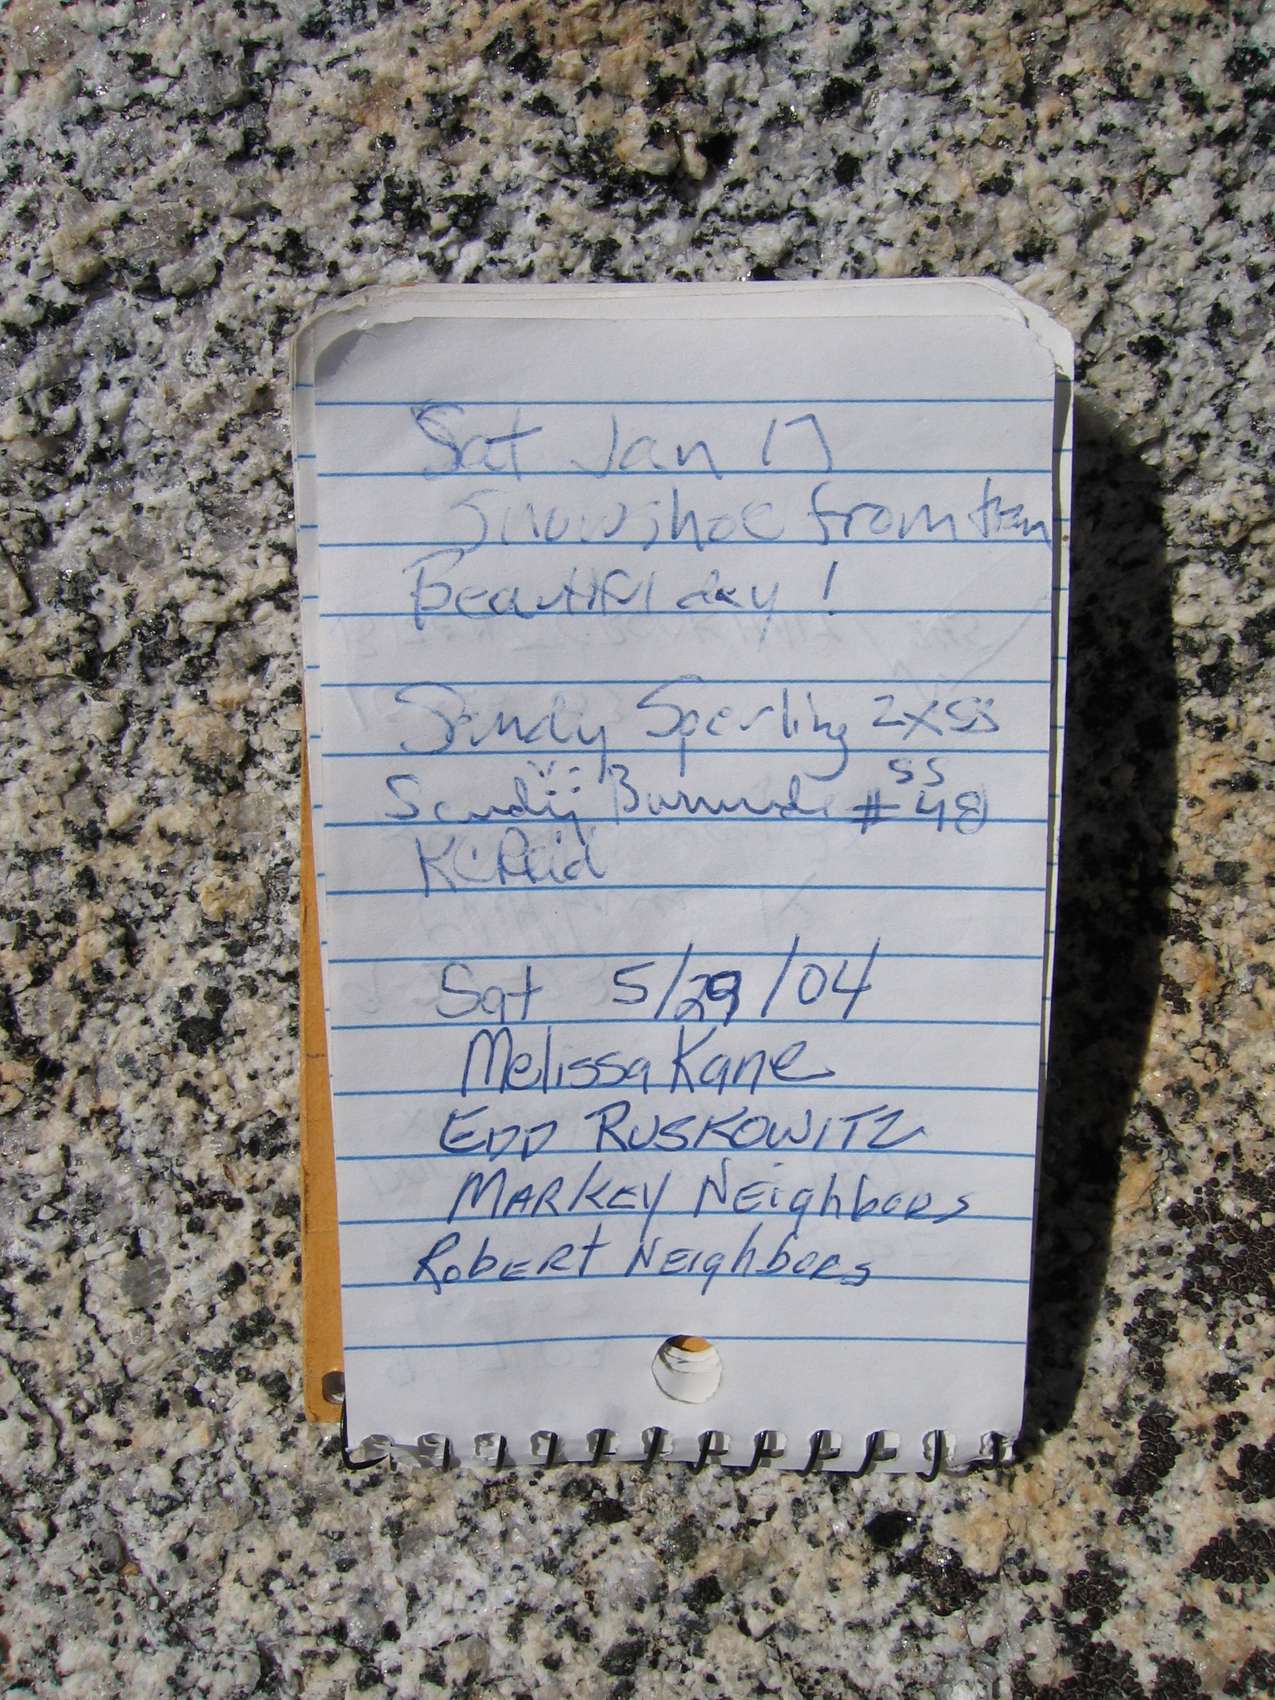 Sat Jan 17
Snowshoe from tram
Beautiful day!
Sandy Sperling 2XSS
Sandy SS #48
KC Reid
Sat 5/29/04
Melissa Kane
EDD RUSKOWITZ
MARKEY NEighboRs
RobERt NEighboRs